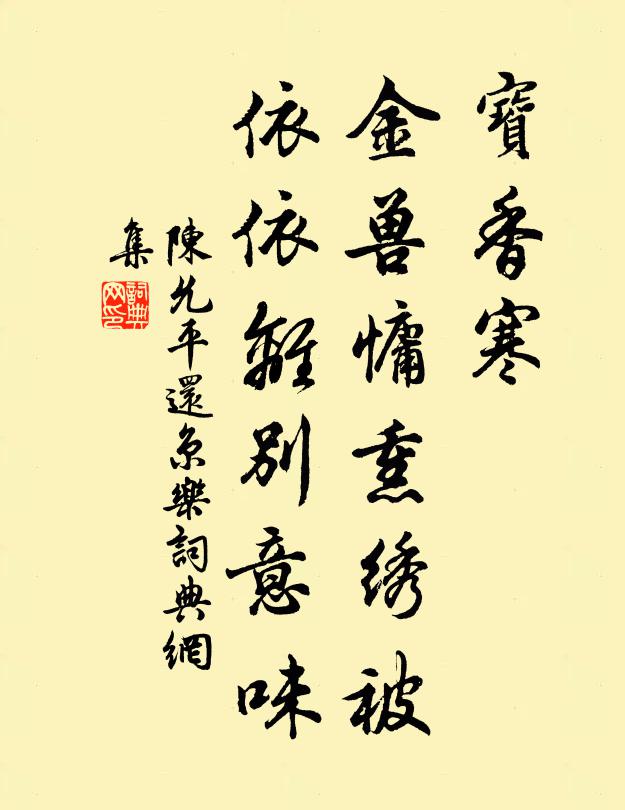 寶香寒
金兽慵熏绣被
依依離别意味
陳允平還京樂詞典網
集
詞典网印